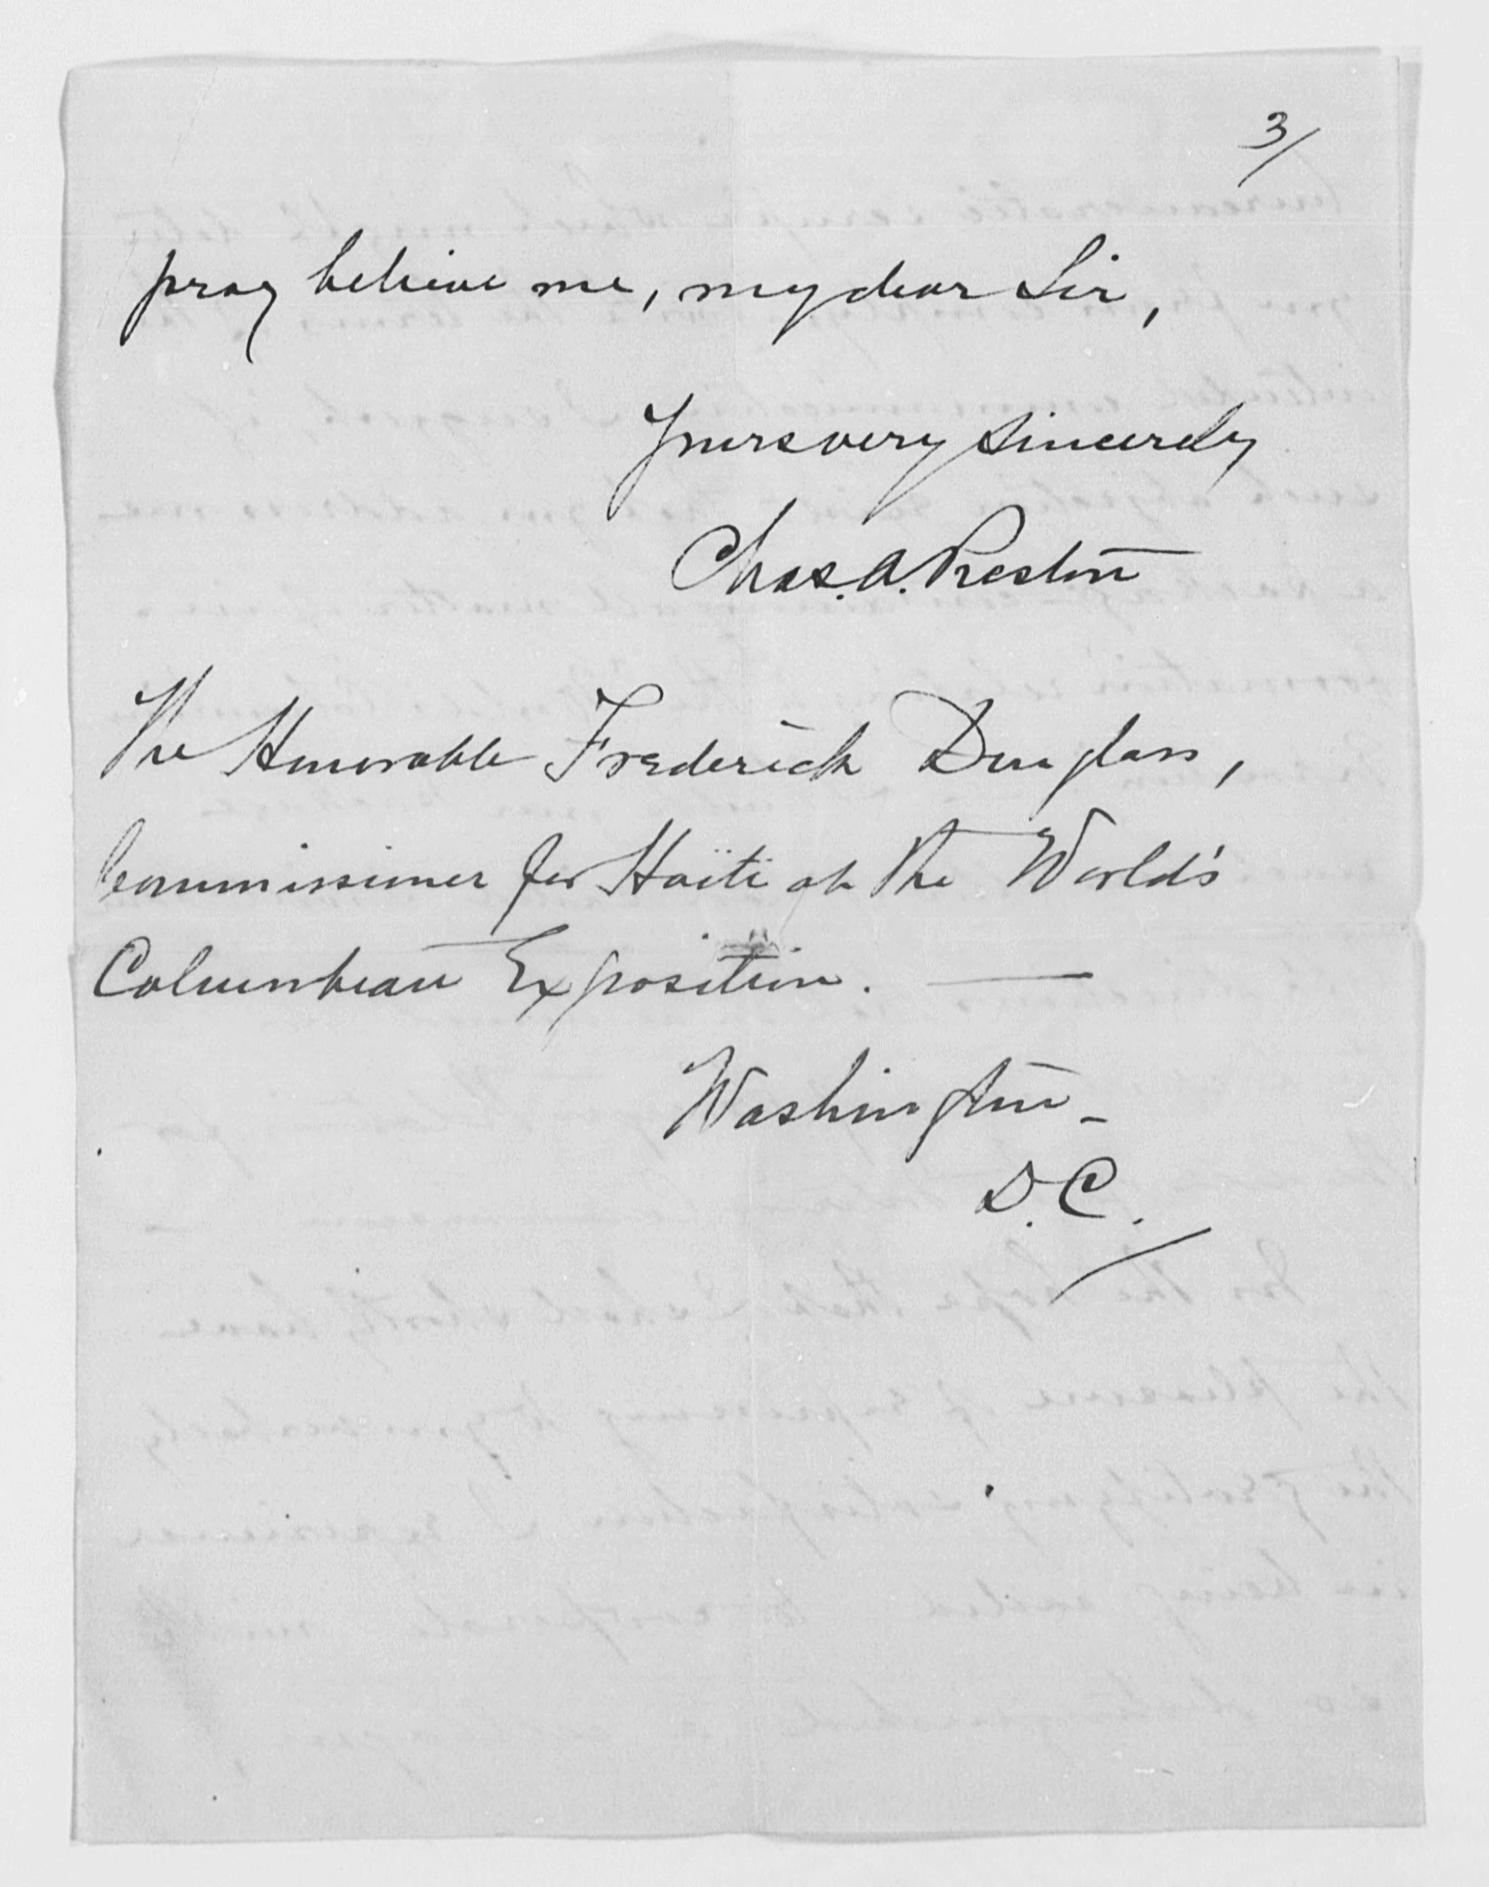 3/
pray believe me, my dear Sir,
Yours very sincerely
Chas. A. Preston
The Honorable Frederick Douglass,
Commissioner for Haïti at the World's
Columbian Exposition. —
Washington -
D. C.